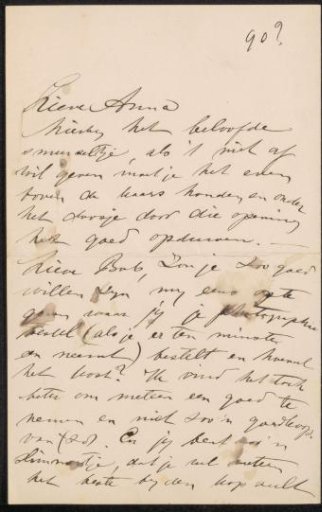 90?
Lieve Anna
Hierbij het beloofde
smeerseltje, als 't niet af
wil geven moet je het even
boven de kaars houden en onder
het doosje door die opening
het goed opduwen. —
Lieve Bab, Zou je zoo goed
willen zijn mij eens op te
geven waar jij je photographie
(als je er ten minste
een neemt) bestelt en hoeveel
het kost? Ik vind het toch
beter om meteen een goed te
nemen en niet zoo'n goedkoop
van (zd). En jij bent zoo'n
slimmertje, dat je wel meteen
het beste bij den kop zult